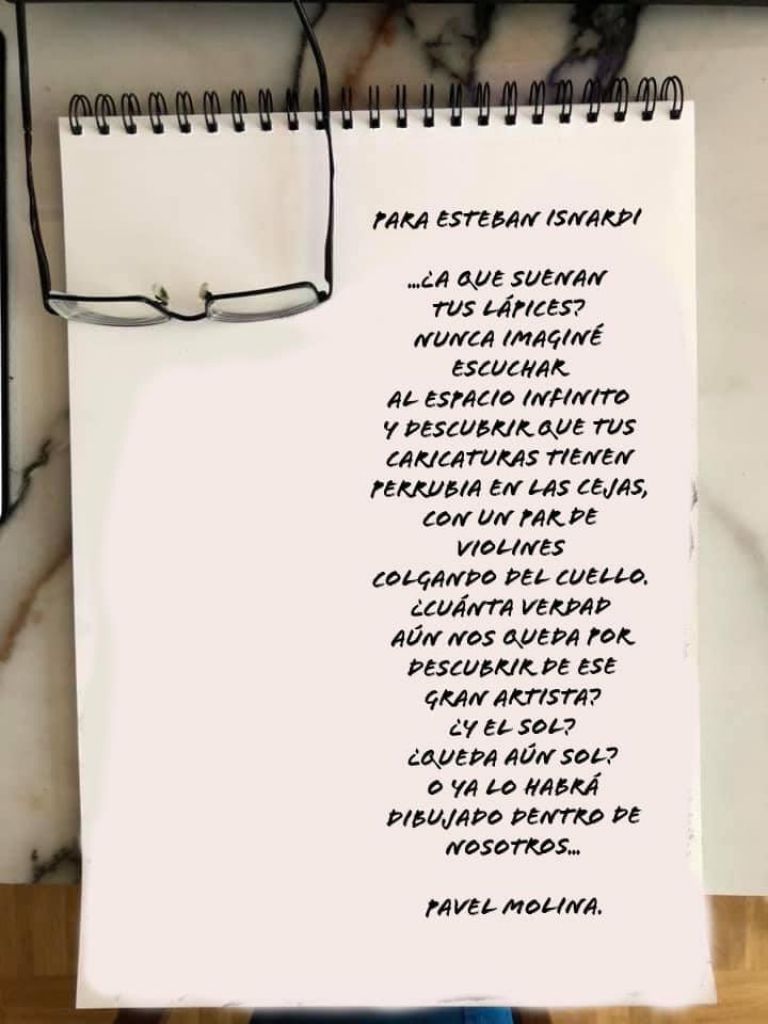 PARA ESTEBAN ISNARDI
...¿A QUE SUENAN
TUS LÁPICES?
NUNCA IMAGINÉ
ESCUCHAR
AL ESPACIO INFINITO
Y DESCUBRIR QUE TUS
CARICATURAS TIENEN
PERRUBIA EN LAS CEJAS,
CON UN PAR DE
VIOLINES
COLGANDO DEL CUELLO.
¿CUÁNTA VERDAD
AÚN NOS QUEDA POR
DESCUBRIR DE ESE
GRAN ARTISTA?
¿Y EL SOL?
¿QUEDA AÚN SOL?
O YA LO HABRÁ
DIBUJADO DENTRO DE
NOSOTROS...
PAVEL MOLINA.